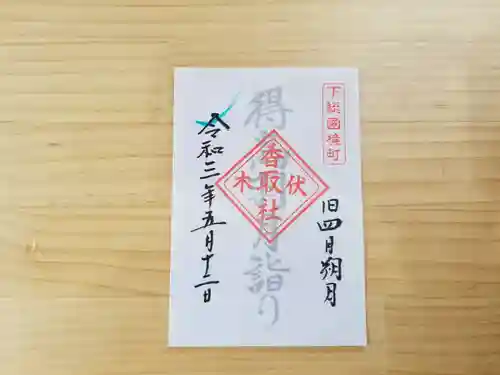 下総國境町
旧四月朔月
香取社
伏木
月詣り
令和三年五月十二日